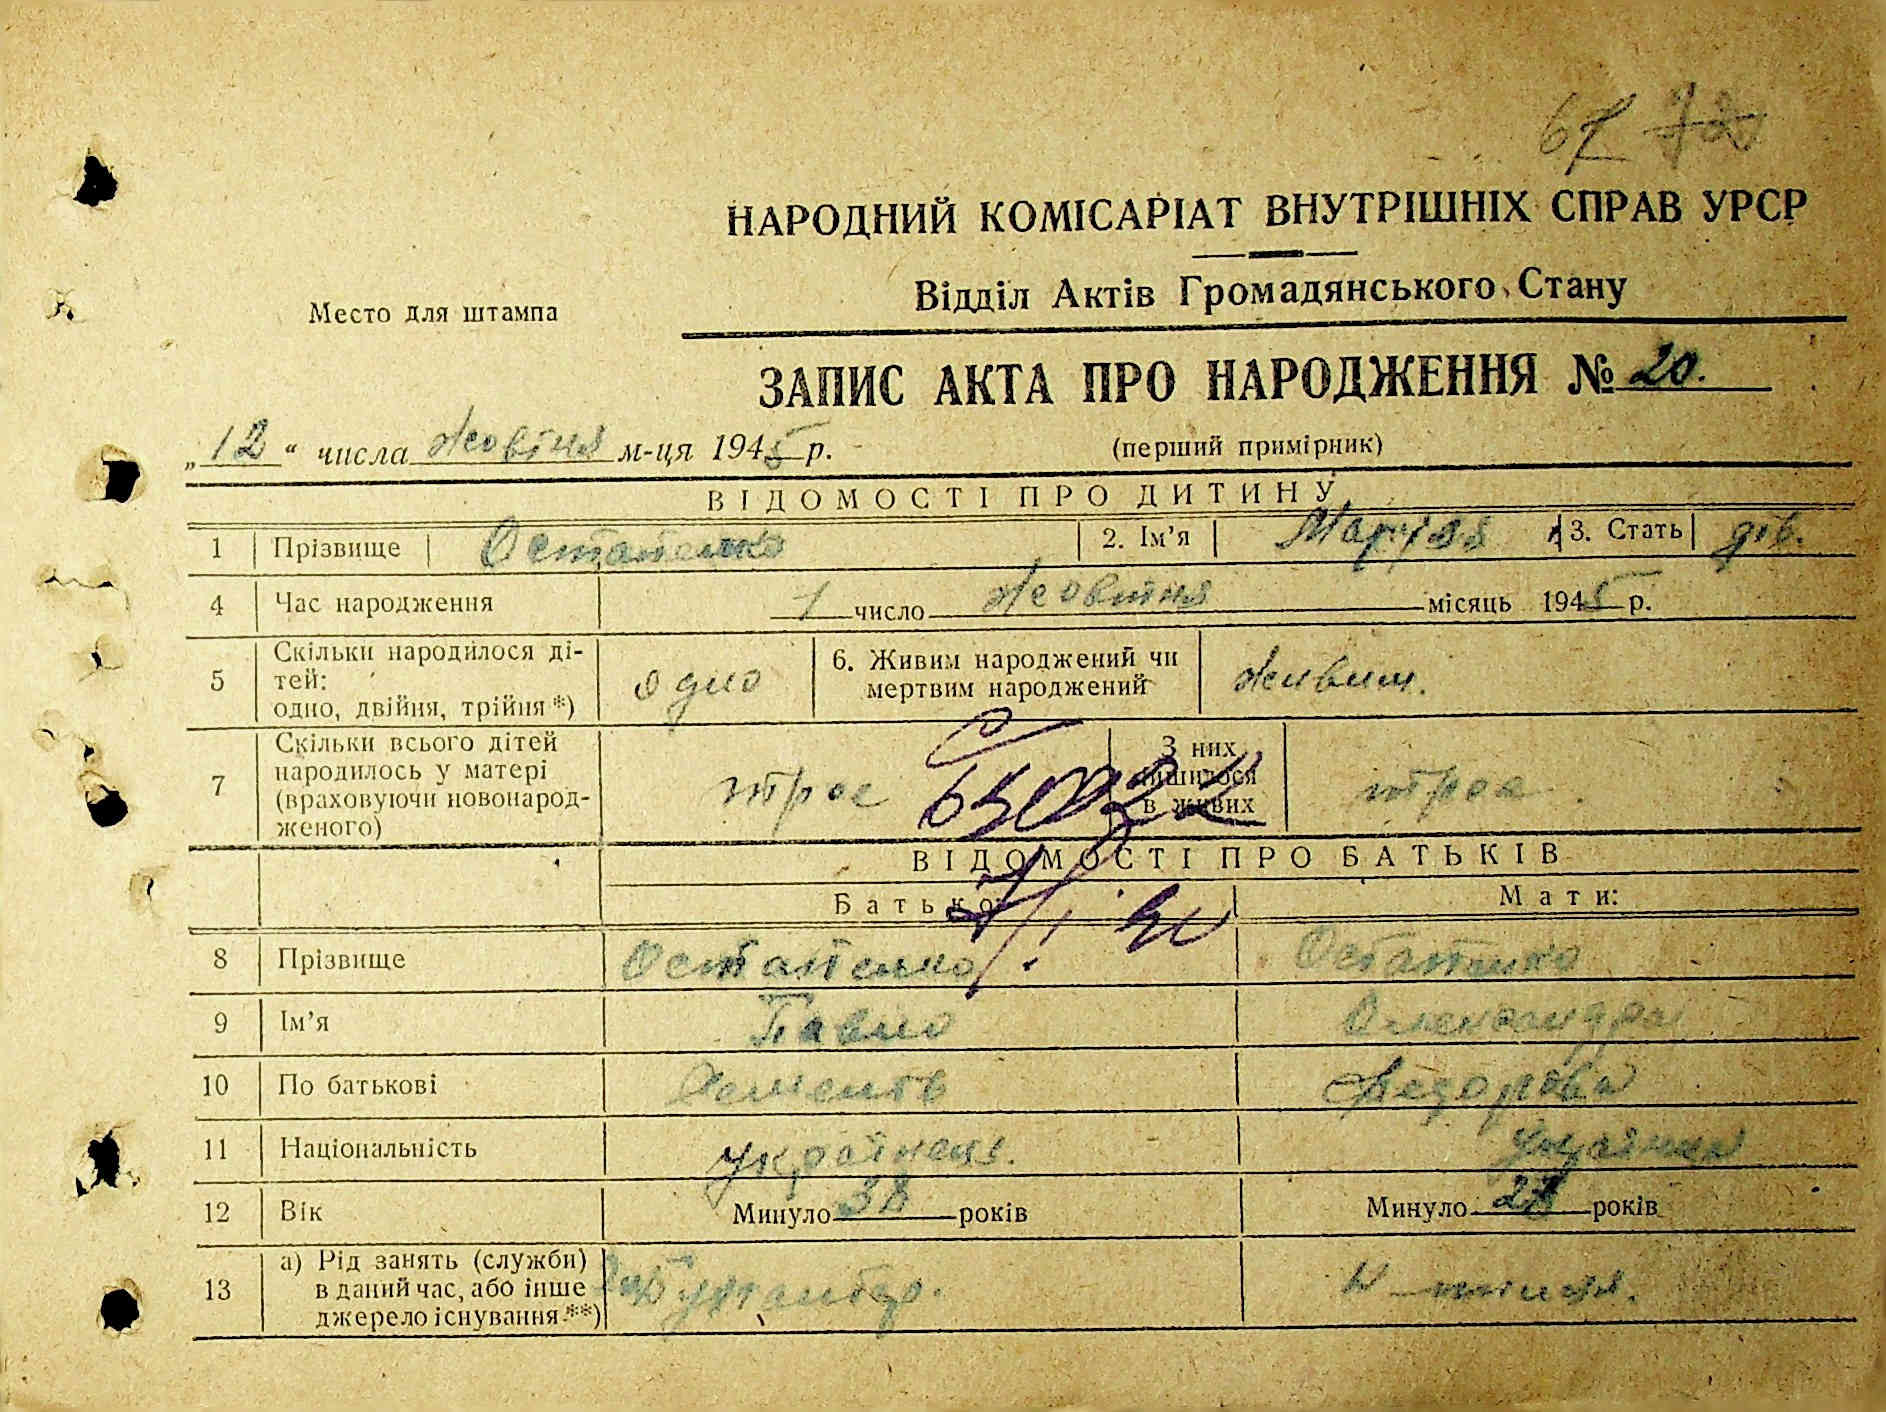 67 72
НАРОДНИЙ КОМІСАРІАТ ВНУТРІШНІХ СПРАВ УРСР
Відділ Актів Громадянського Стану
Место для штампа
ЗАПИС АКТА ПРО НАРОДЖЕННЯ № 20.
„12“ числа Жовтня м-ця 1945 р.
(перший примірник)
ВІДОМОСТІ ПРО ДИТИНУ
1 Прізвище Остапенко 2. Ім’я Марія 3. Стать дів.
4 Час народження 1 число Жовтня місяць 1945 р.
5 Скільки народилося ді-
тей:
одно, двійня, трійня *) одно 6. Живим народжений чи
мертвим народжений Живим.
7 Скільки всього дітей
народилось у матері
(враховуючи новонарод-
женого) троє З них
лишилося
в живих троє.
ВІДОМОСТІ ПРО БАТЬКІВ
Батько: Мати:
8 Прізвище Остапенко Остапенко
9 Ім’я Павло Олександра
10 По батькові Федоровн
11 Національність українець. українка
12 Вік Минуло 38 років Минуло 28 років
13 а) Рід занять (служби)
в даний час, або інше
джерело існування **)